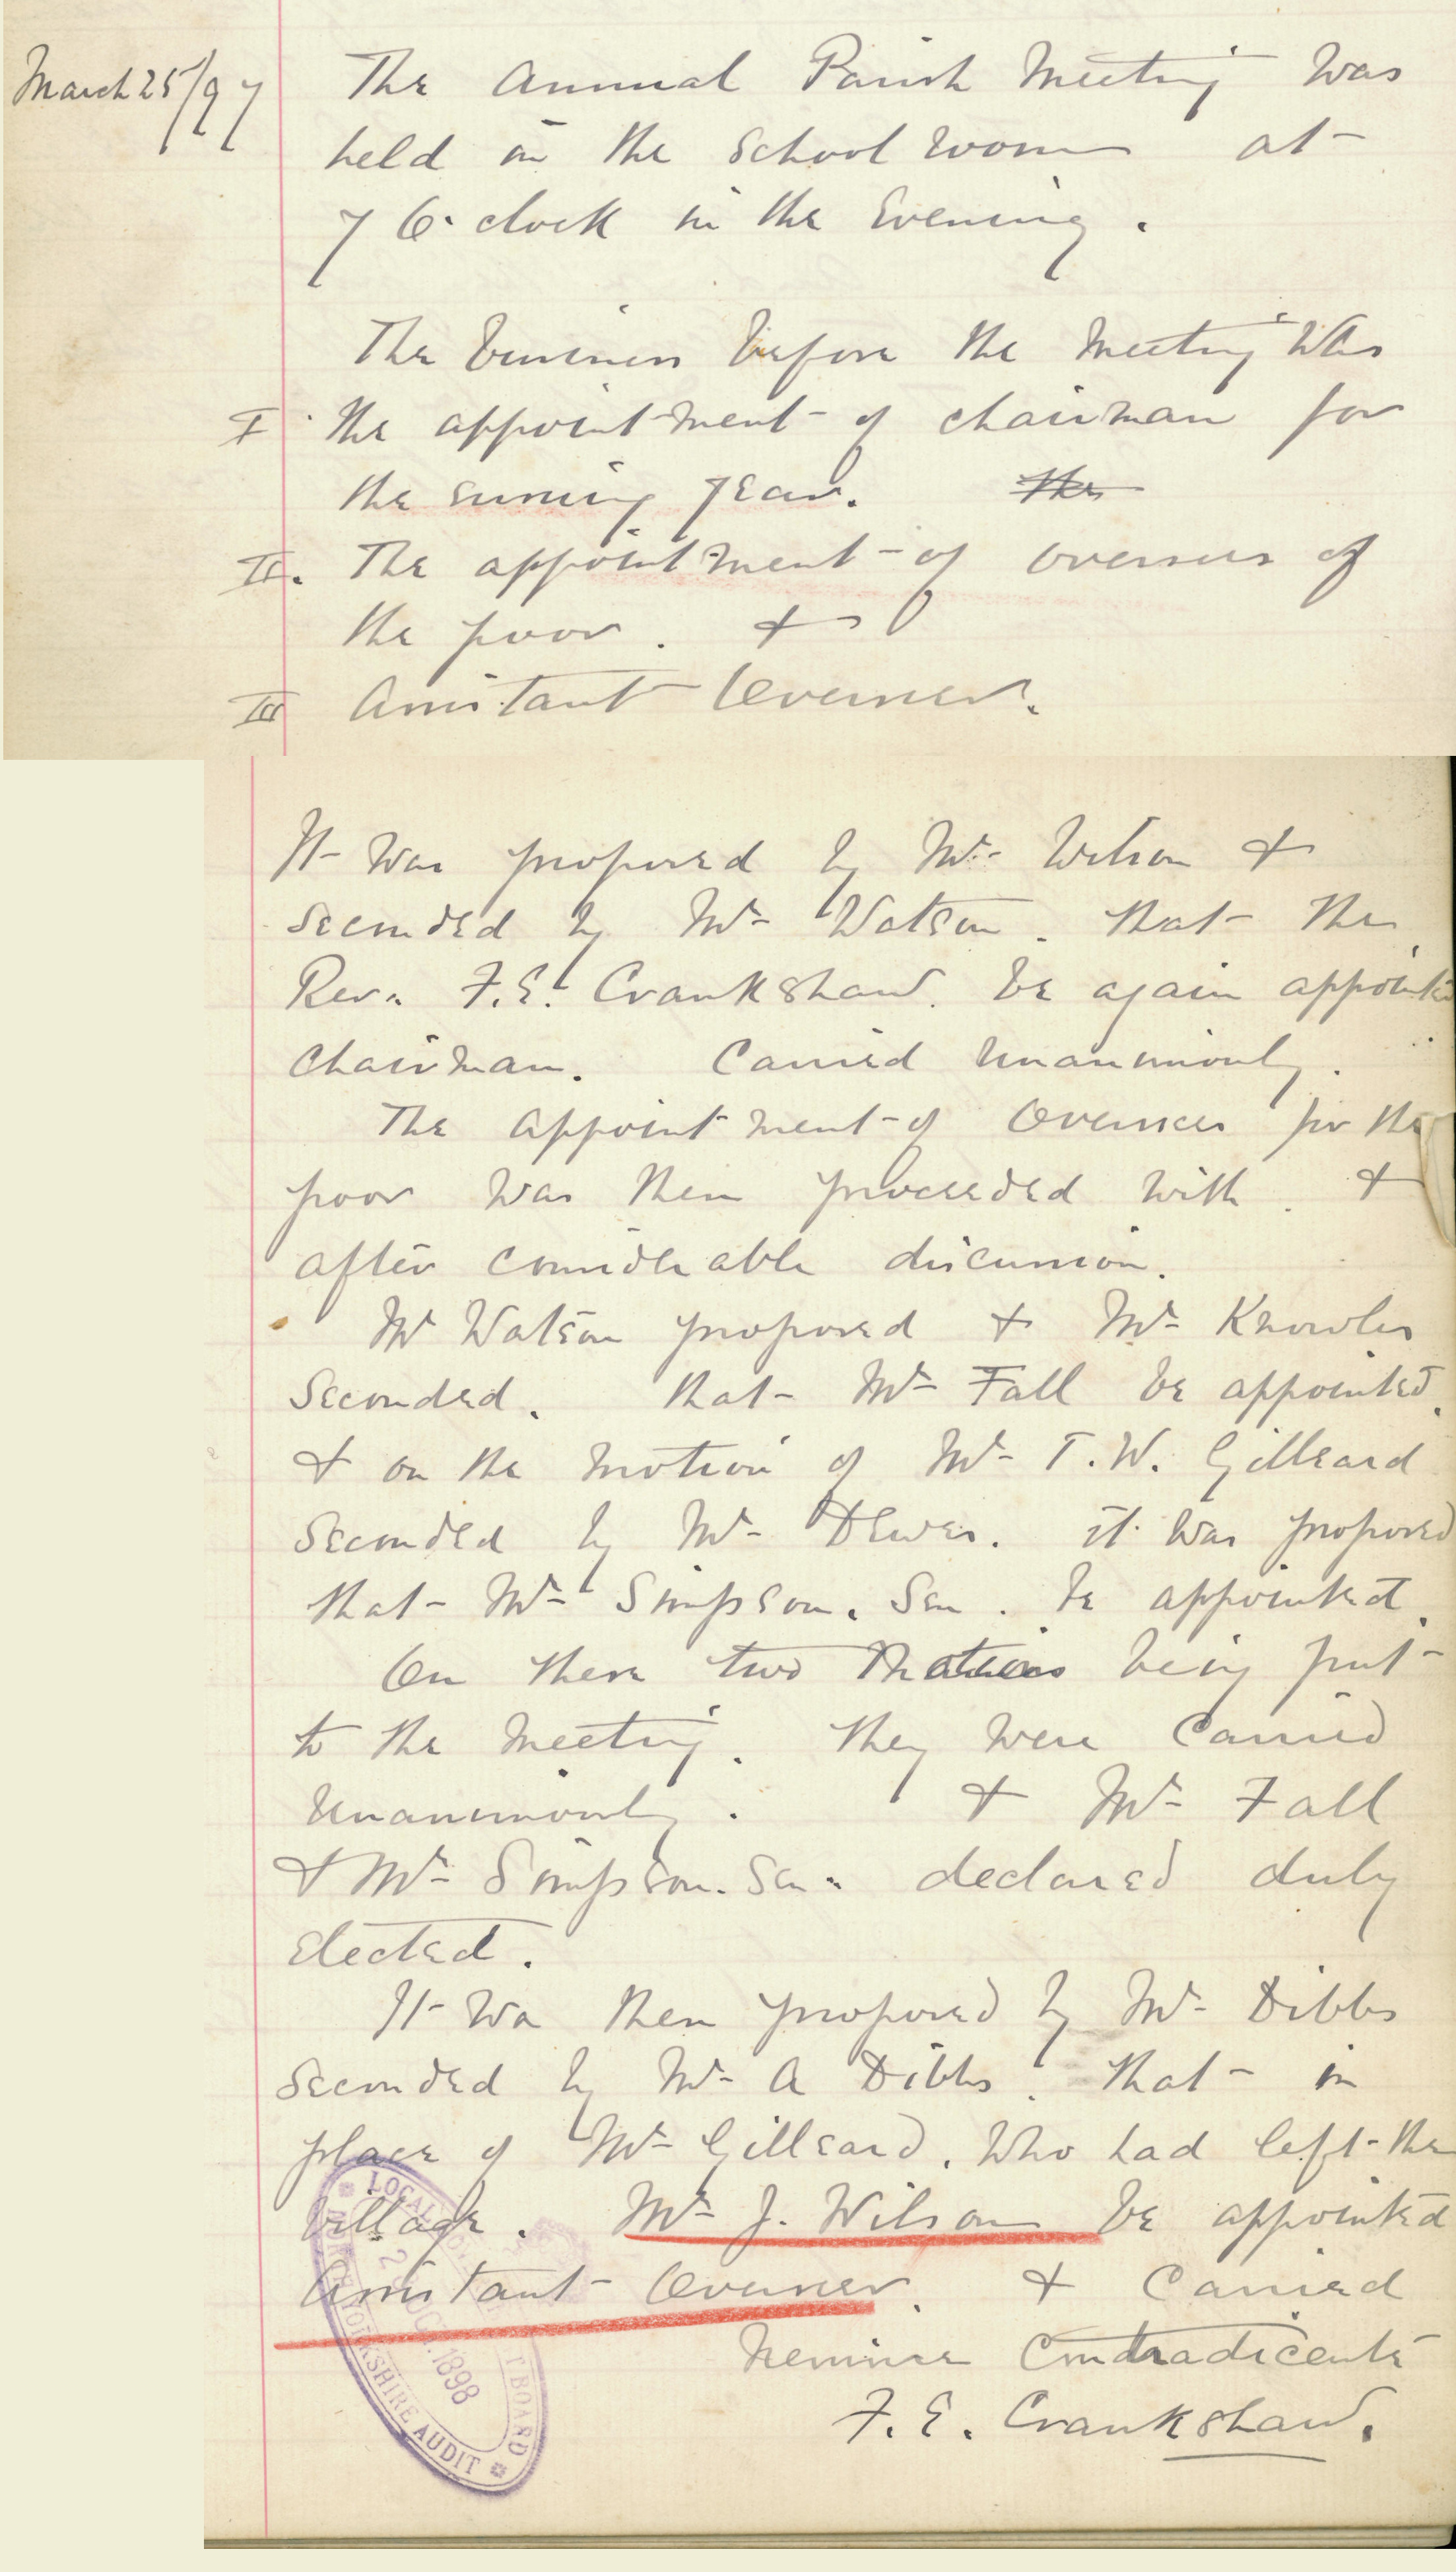 March 25/97
The Annual Parish Meeting was
held in the School room at
7 O'clock in the Evening.
The business before the Meeting Was
I. the appointment of chairman for
the suning year. the
II. The appointment of overseers of
the poor. &
III Assistant Overseer.
It Was proposed by Mr. Wilson &
seconded by Mr Watson. that the
Rev. F.E. Crankshaw. be again appointed
Chairman. Carried Unanimously.
The appointment of Overseers for the
poor Was then proceeded with. &
after considerable discussion.
Mr Watson proposed & Mr Knowles
Seconded. that Mr Fall be appointed.
& on the motion of Mr T.W. Gilleard
Seconded by Mr Dewes. it was proposed
that Mr Simpson. Sen. be appointed.
On these two Motions being put
to the Meeting. they were Carried
Unanimously. & Mr Fall
& Mr Simpson. Sen. declared duly
elected.
It Wa then proposed by Mr Dibbs
seconded by Mr A Dibbs. that in
place of Mr Gilleard, Who had left the
Village. Mr J. Wilson be appointed
Assistant Overseer. & Carried
Nemine Contradicente
F. E. Crankshaw.
LOCAL BOARD
YORKSHIRE AUDIT
2 OCT. 1898